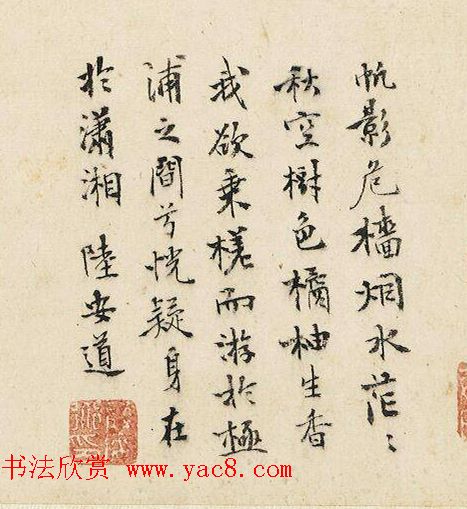 帆影危檣烟水茫〻
秋空樹色橘柚生香
我欲乗槎而游於極
浦之間兮恍疑身在
於瀟湘 陸安道
书法欣赏 www.yac8.com